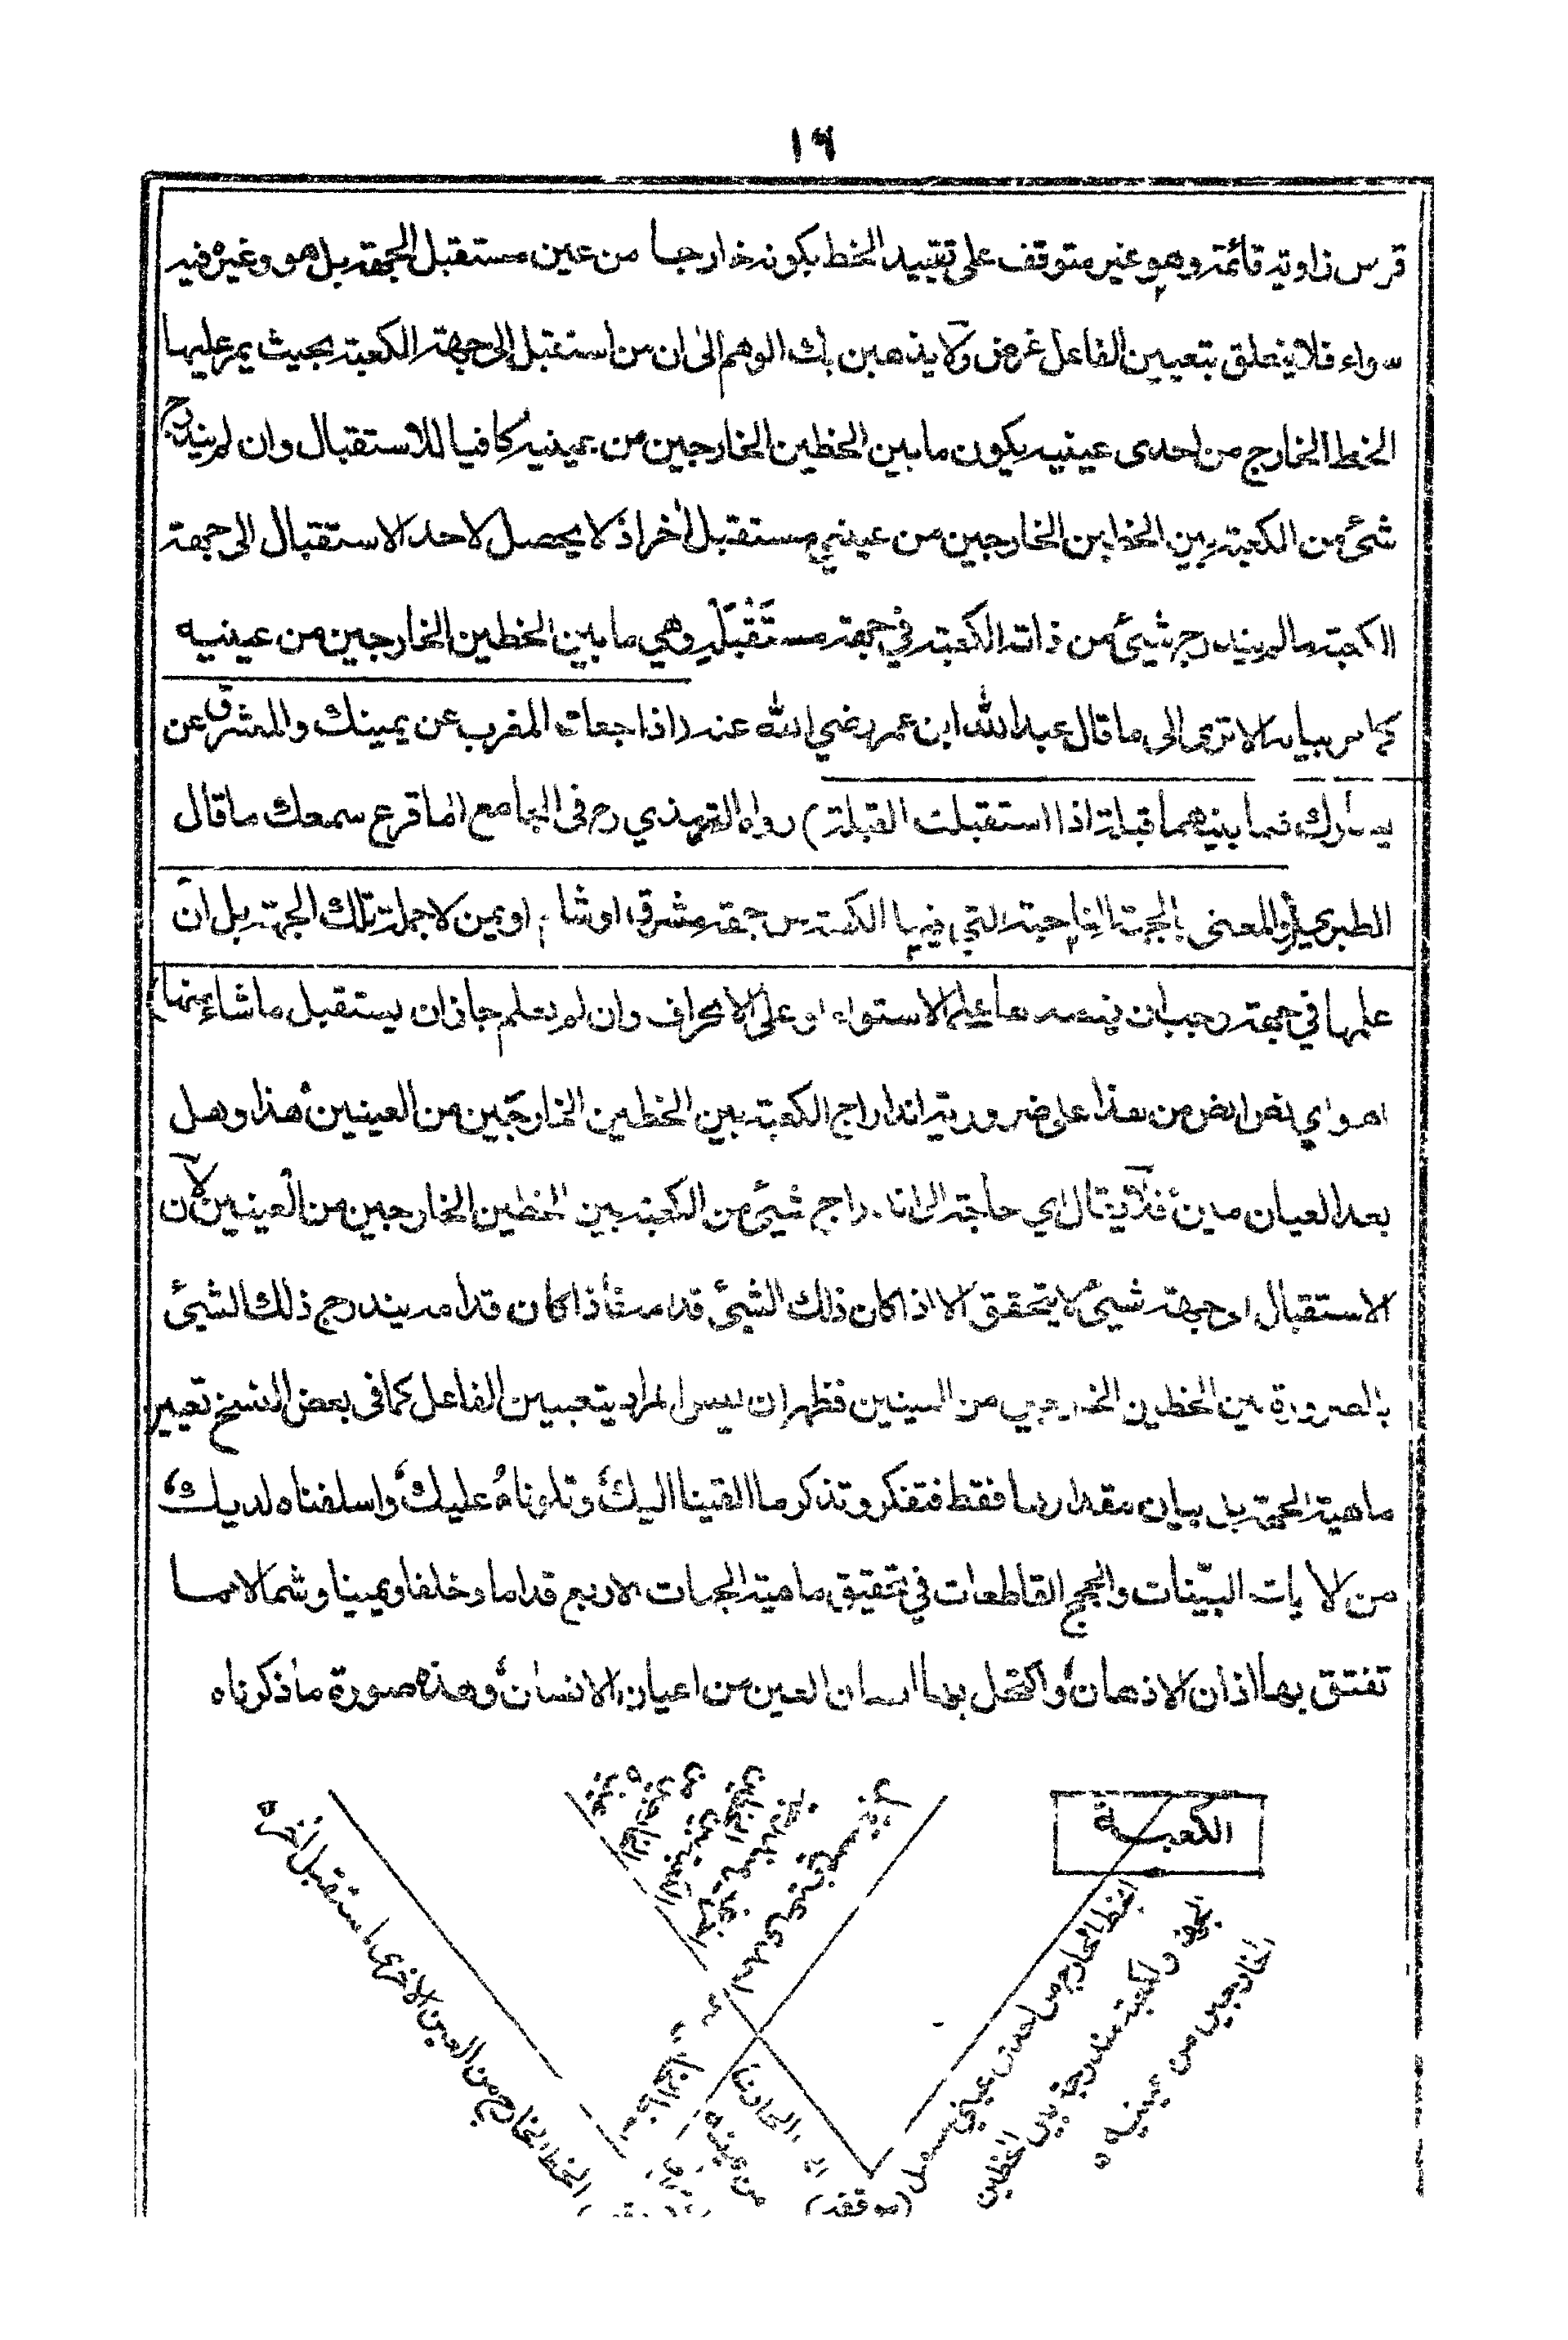 ١٦
قرس زاوية قائمة وهو غير متوقف على تقييد الخط بكونه خارجا من عين مستقبل الجهة بل هو وغيره فيه
سواء فلا يتعلق بتعيين الفاعل غرض ولا يذهبن بك الوهم الى ان من استقبل الى جهة الكعبة بحيث يمر عليها
الخط الخارج من احدى عينيه يكون ما بين الخطين الخارجين من يمينيه كافيا للاستقبال وان لم يندرج
شئ من الكعبة بين الخطين الخارجين من عيني مستقبل آخر اذ لا يحصل لاحد الاستقبال الى جهة
الكعبة ما لم يندرج شيئ من ذات الكعبة في جهة مستقبله وهي ما بين الخطين الخارجين من عينيه
كما مر بيانه الا ترى الى ما قال عبد الله ابن عمر رضي الله عنه (اذا جعلت المغرب عن يمينك والمشرق عن
يسارك فما بينهما قبلة اذا استقبلت القبلة) رواه الترمذي رح فى الجامع اما قرع سمعك ما قال
الطبري والمعنى بالجهة الناحية التي فيها الكعبة من جهة مشرق او شام او يمن لا جملة تلك الجهة بل ان
علمها في جهة وجب ان يقصدها على الاستواء او على الانحراف وان لم يعلم جاز ان يستقبل ما شاء منها
اهـ واي نص انص من هذا على ضرورية اندراج الكعبة بين الخطين الخارجين من العينين هذا وهل
بعد العيان مين فلا يقال اي حاجة الى اندراج شيئ من الكعبة بين الخطين الخارجين من العينين لان
الاستقبال الى جهة شيئ لا يتحقق الا اذا كان ذلك الشيئ قدامه فاذا كان قدامه يندرج ذلك الشيئ
بالضرورة بين الخطين الخارجين من العينين فظهر ان ليس المراد بتعيين الفاعل كما فى بعض النسخ تعيير
ماهية الجهة بل بيان مقدارها فقط فتفكر وتذكر ما القينا اليك وتلوناه عليك واسلفناه لديك
من الآيات البينات والحجج القاطعات في تحقيق ماهية الجهات الاربع قداما وخلفا ويمينا وشمالا مما
تفتتق بها اذان الاذهان واكتحل بها انسان العين من اعيان الانسان وهذه صورة ما ذكرناه
الكعبة
الخط الخارج من احدى عيني
الكعبة مندرجة بين الخطين
الخارجين من عينيه
(موقفه)
الخط الخارج من العين الاخرى